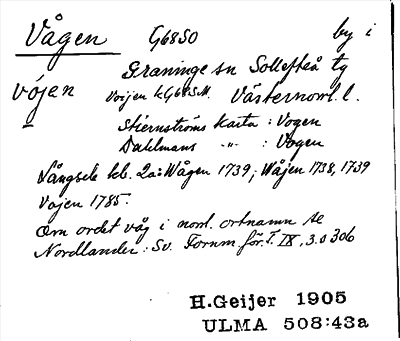 Vågen G68SO by i
Graninge sn Sollefteå tg
vójen Voijen kG68SM. Västernorrl. l.
Stiernströms karta : Vogen
Dahlmans " : Vogen
Långsele kb. 2a: Wågen 1739; Wåjen 1738, 1739
Vojen 1785.
Om ordet våg i norrl. ortnamn se
Nordlander: Sv. Fornm. för. T. IX, 3.0 306
H.Geijer 1905
ULMA 508:43a